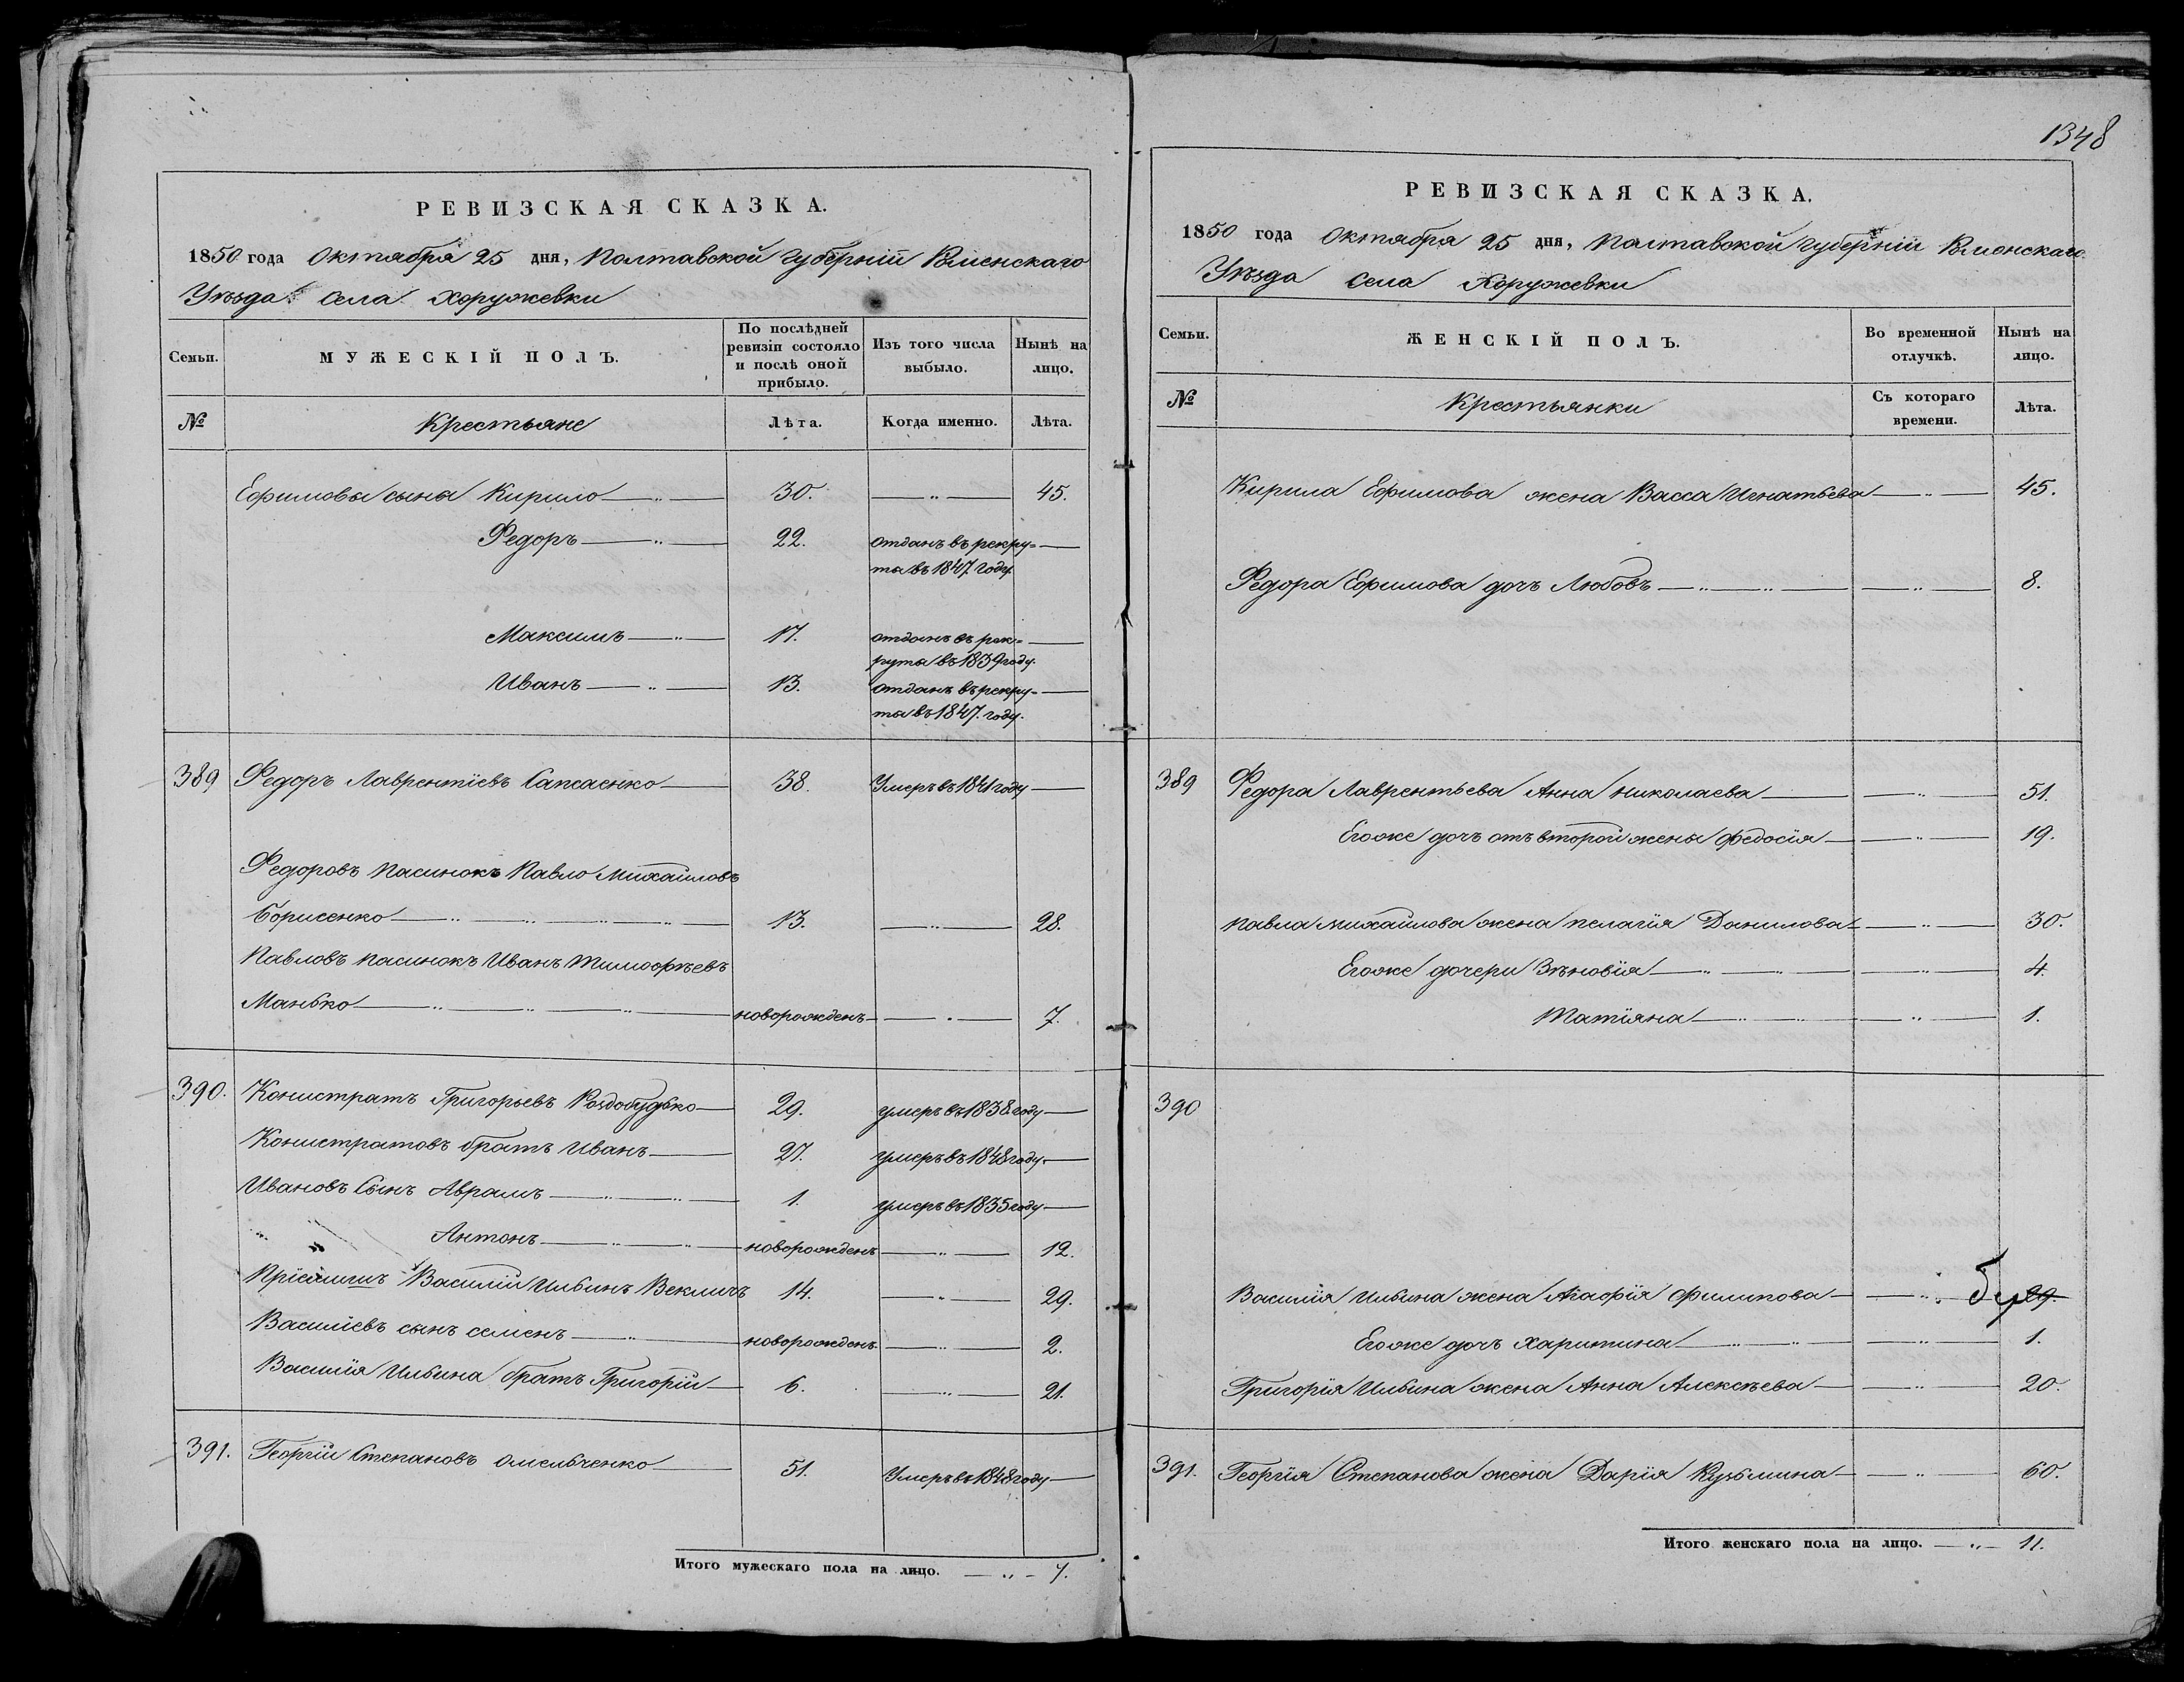 РЕВИЗСКАЯ СКАЗКА.
1850 года Октября 25 дня, Полтавской губерніи Роменскаго
Уѣзда села Хоружевки
Семьи.
МУЖЕСКІЙ ПОЛЪ.
По послѣдней
ревизіи состояло
и послѣ оной
прибыло.
Изъ того числа
выбыло.
Нынѣ на
лицо.
№ Крестьяне Лѣта. Когда именно. Лѣта.
Ефимовы сыны Кирило 30. — „ — 45.
Федоръ 22. отданъ въ рекру-
ты въ 1847 году.
Максимъ 17. отданъ въ рек-
руты въ 1839 году.
Иванъ 13. отданъ въ рекру-
ты въ 1847. году.
389 Федоръ Лаврентіевъ Сапсаенко 38. Умеръ въ 1841 году
Федоровъ пасинокъ Павло Михайловъ
Борисенко 13. — „ — 28.
Павловъ пасинокъ Иванъ Тимофѣевъ
Манько новорожденъ — „ — 7.
390. Конистратъ Григорьевъ Роздобудько 29. умеръ въ 1838 году
Конистратовъ братъ Иванъ 27. умеръ въ 1848 году.
Ивановъ Сынъ Аврамъ 1. умеръ въ 1835 году
„ „ Антонъ новорожденъ — „ — 12.
Пріемишъ Василій Ильинъ Векличъ 14. — „ — 29.
Василіевъ сынъ семенъ новорожденъ — „ — 2.
Василія Ильина братъ Григорій 6. — „ — 21.
391. Георгій Степановъ Омельченко 51. Умеръ въ 1848 году
Итого мужескаго пола на лицо. — „ — 7.
1348
РЕВИЗСКАЯ СКАЗКА.
1850 года Октября 25 дня, Полтавской губерніи Роменскаго
Уѣзда села Хоружевки
Семьи.
ЖЕНСКІЙ ПОЛЪ.
Во временной
отлучкѣ.
Нынѣ на
лицо.
№ Крестьянки
Съ котораго
времени.
Лѣта.
Кирила Ефимова жена Васса Игнатьева — „ — 45.
Федора Ефимова дочь Любовь — „ — 8.
389 Федора Лаврентьева Анна Николаева — „ — 51.
Егоже дочь отъ второй жены Федосія — „ — 19.
Павла Михайлова жена Пелагія Данилова — „ — 30.
Егоже дочери Зѣновія — „ — 4.
Татіяна — „ — 1.
390
Василія Ильина жена Агафія Филипова — „ — 29.
Егоже дочь Харитина — „ — 1.
Григорія Ильина жена Анна Алексѣева — „ — 20.
391. Георгія Степанова жена Дарія Кузьмина — „ — 60.
Итого женскаго пола на лицо. — „ — 11.